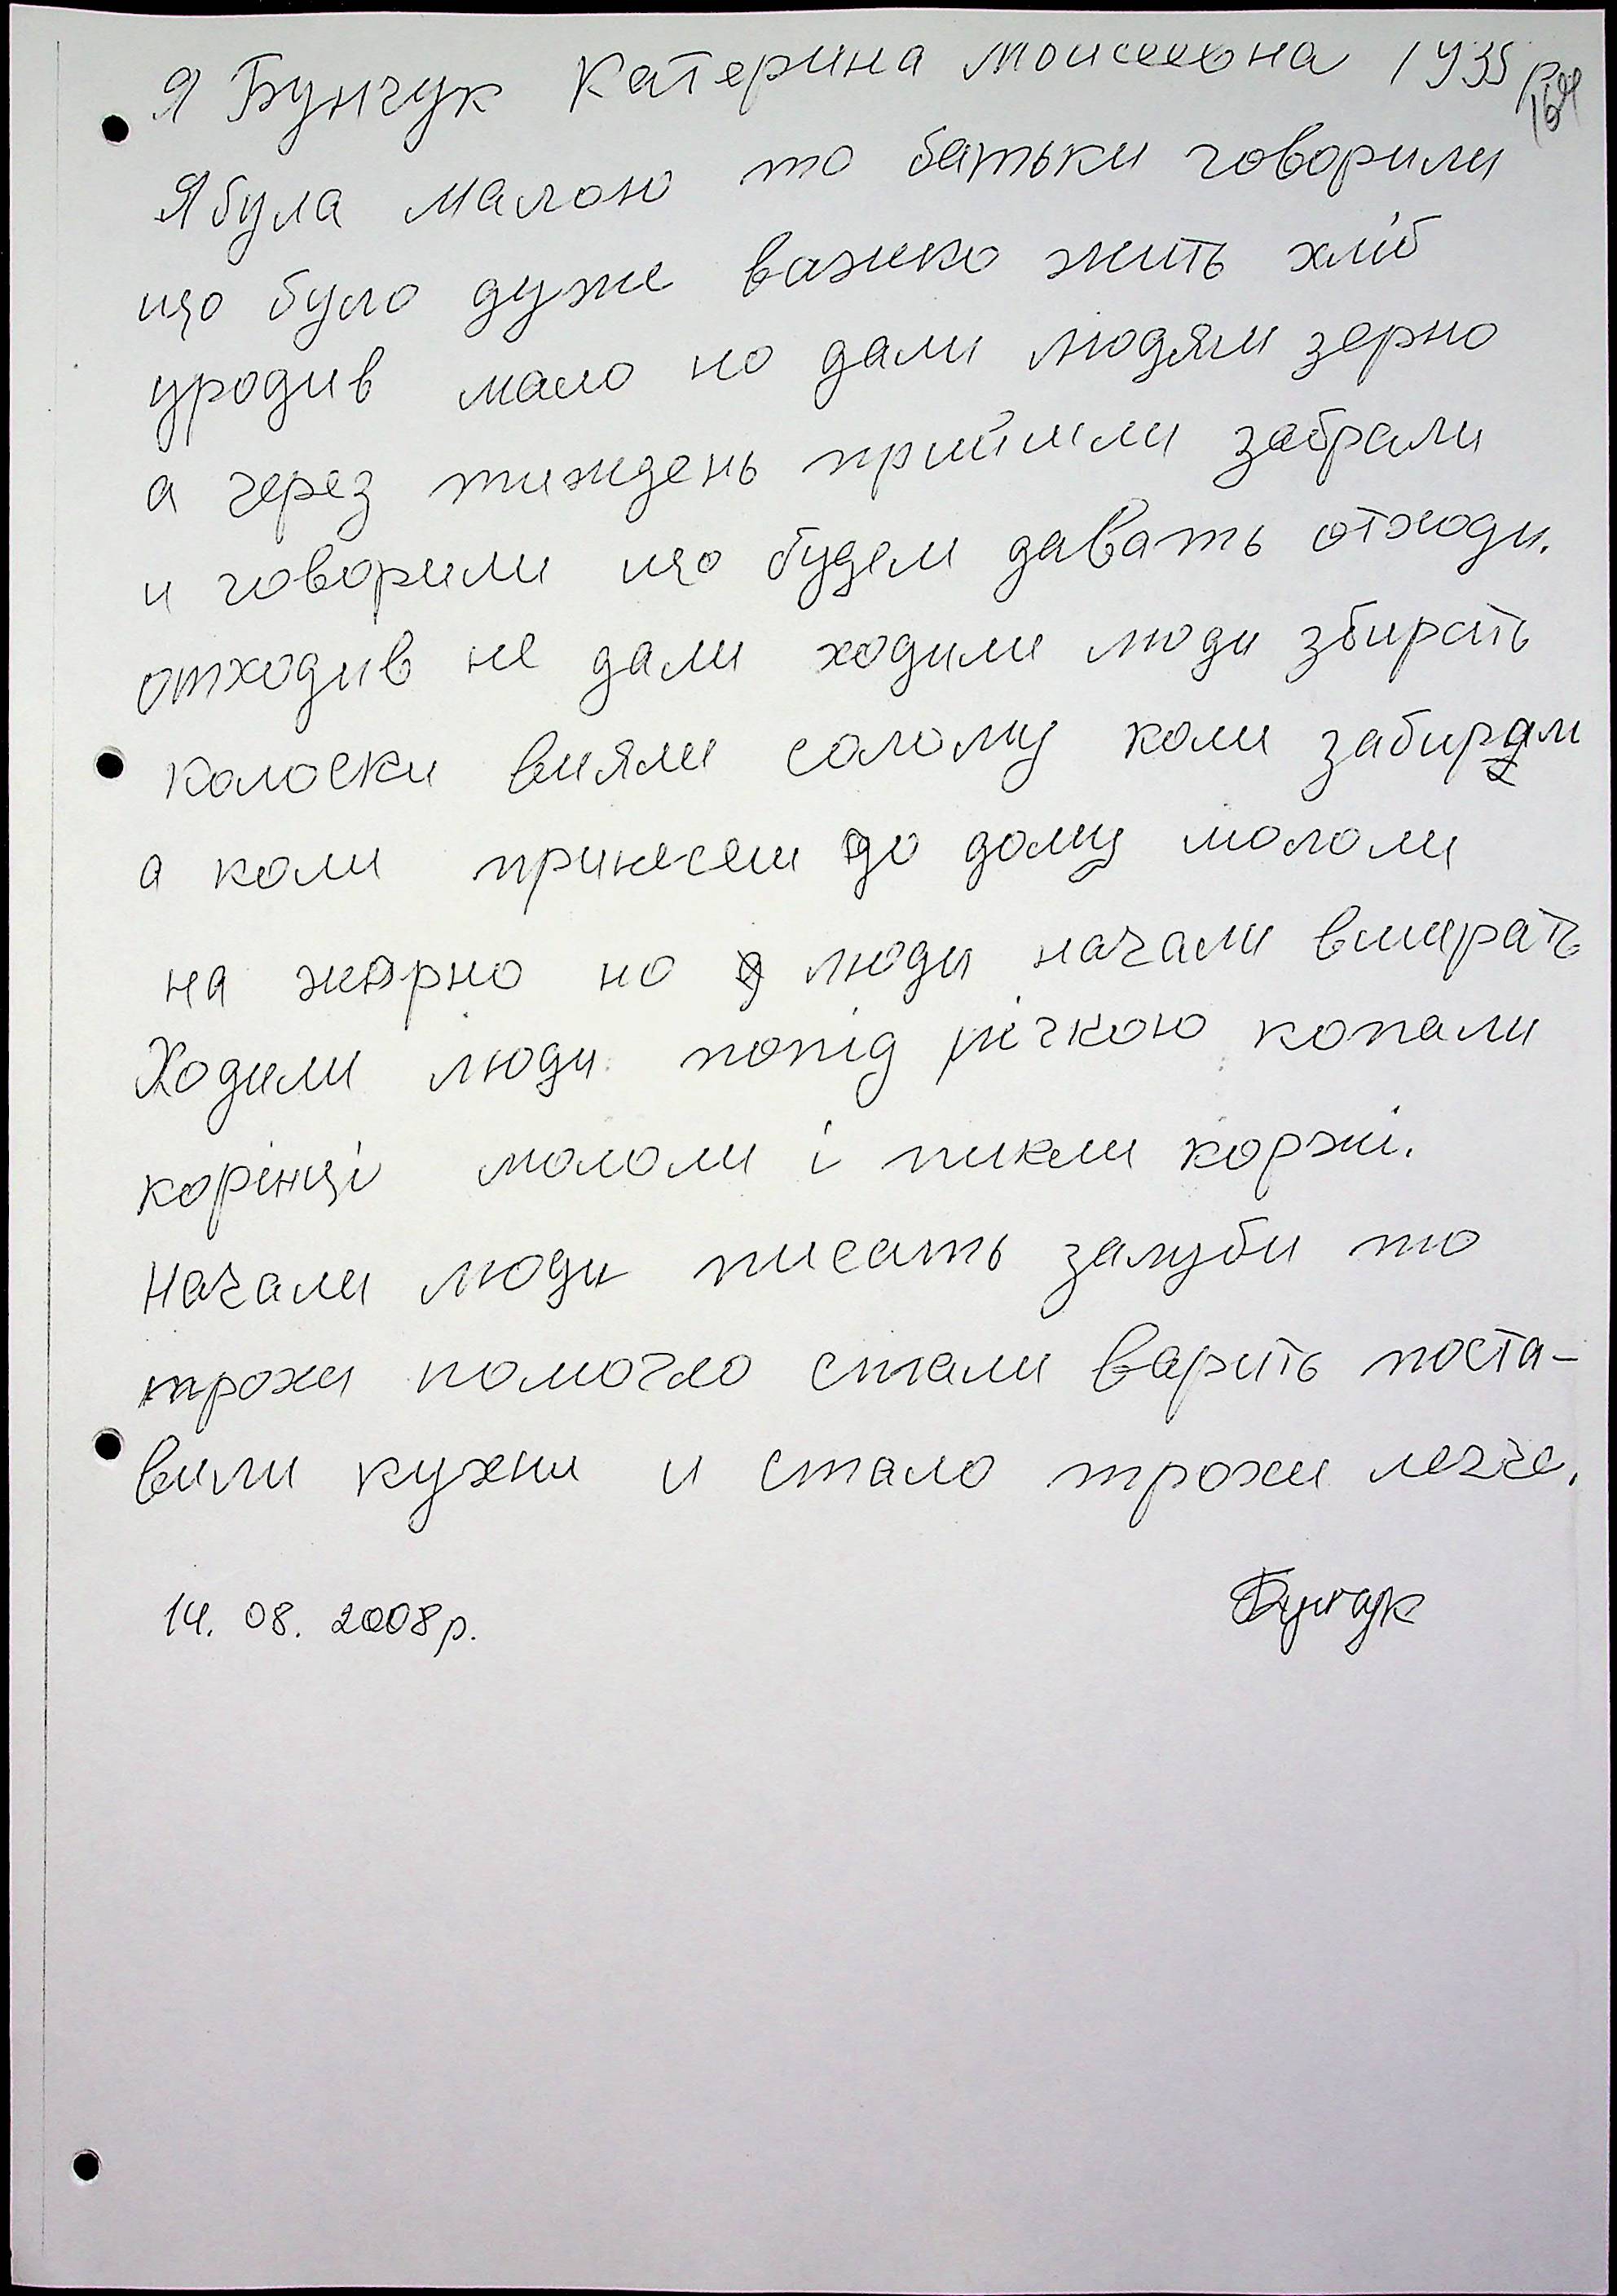 Я Бунчук Катерина Моисеевна 1935 р.
164
Я була малою то батьки говорили
що було дуже важко жить хліб
уродив мало но дали людям зерно
а через тиждень прийшли забрали
и говорили що будем давать отходи.
отходив не дали ходили люди збирать
колоски вияли солому коли забирали
а коли принесем до дому мололи
на жорно но люди начали вмирать
Ходили люди попід річкою копали
корінці мололи і пикли коржі.
Начали люди писать залуби то
трохи помогло стали варить поста-
вили кухни и стало трохи легче.
14. 08. 2008р.
Бунчук